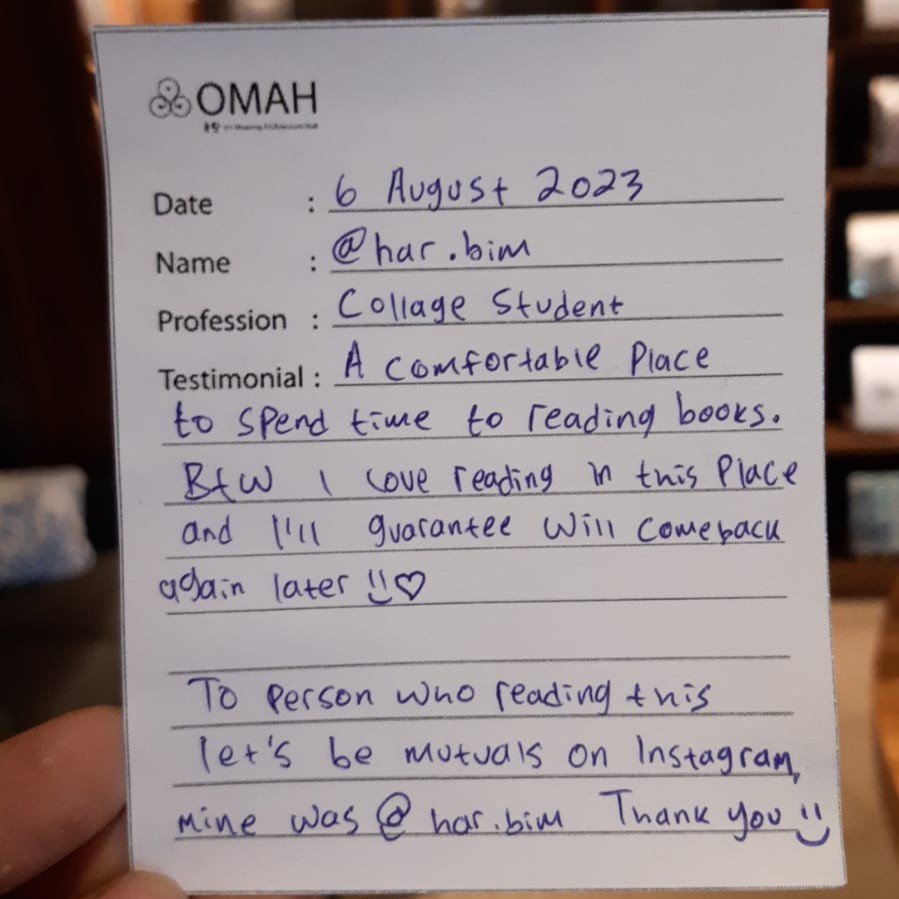 OMAH
Date : 6 August 2023
Name : @har.bim
Profession : Collage Student
Testimonial : A comfortable Place
to spend time to reading books.
BtW I love reading in this Place
and I'll guarantee will comeback
again later !! ♡
To person who reading this
let's be mutuals on Instagram,
mine was @har.bim Thank you !!